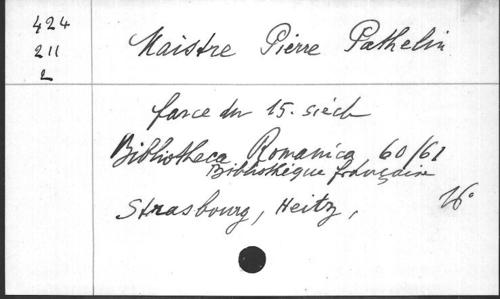 424
211
2
Maistre Pierre Pathelin
farce du 15. siècle
Bibliotheca Romanica 60/61
Bibliothèque française
Strasbourg, Heitz, 16°